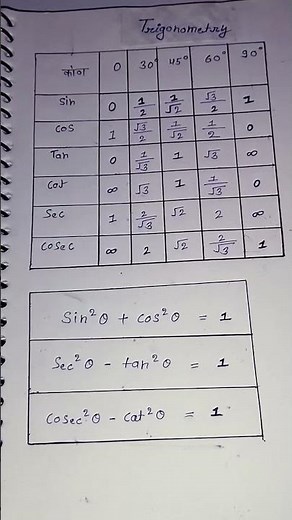 Trigonometry
कोण 0 30° 45° 60° 90°
Sin 0 1/2 1/√2 √3/2 1
Cos 1 √3/2 1/√2 1/2 0
Tan 0 1/√3 1 √3 ∞
Cat ∞ √3 1 1/√3 0
Sec 1 2/√3 √2 2 ∞
Cosec ∞ 2 √2 2/√3 1
Sin²θ + cos²θ = 1
Sec²θ - tan²θ = 1
Cosec²θ - Cat²θ = 1